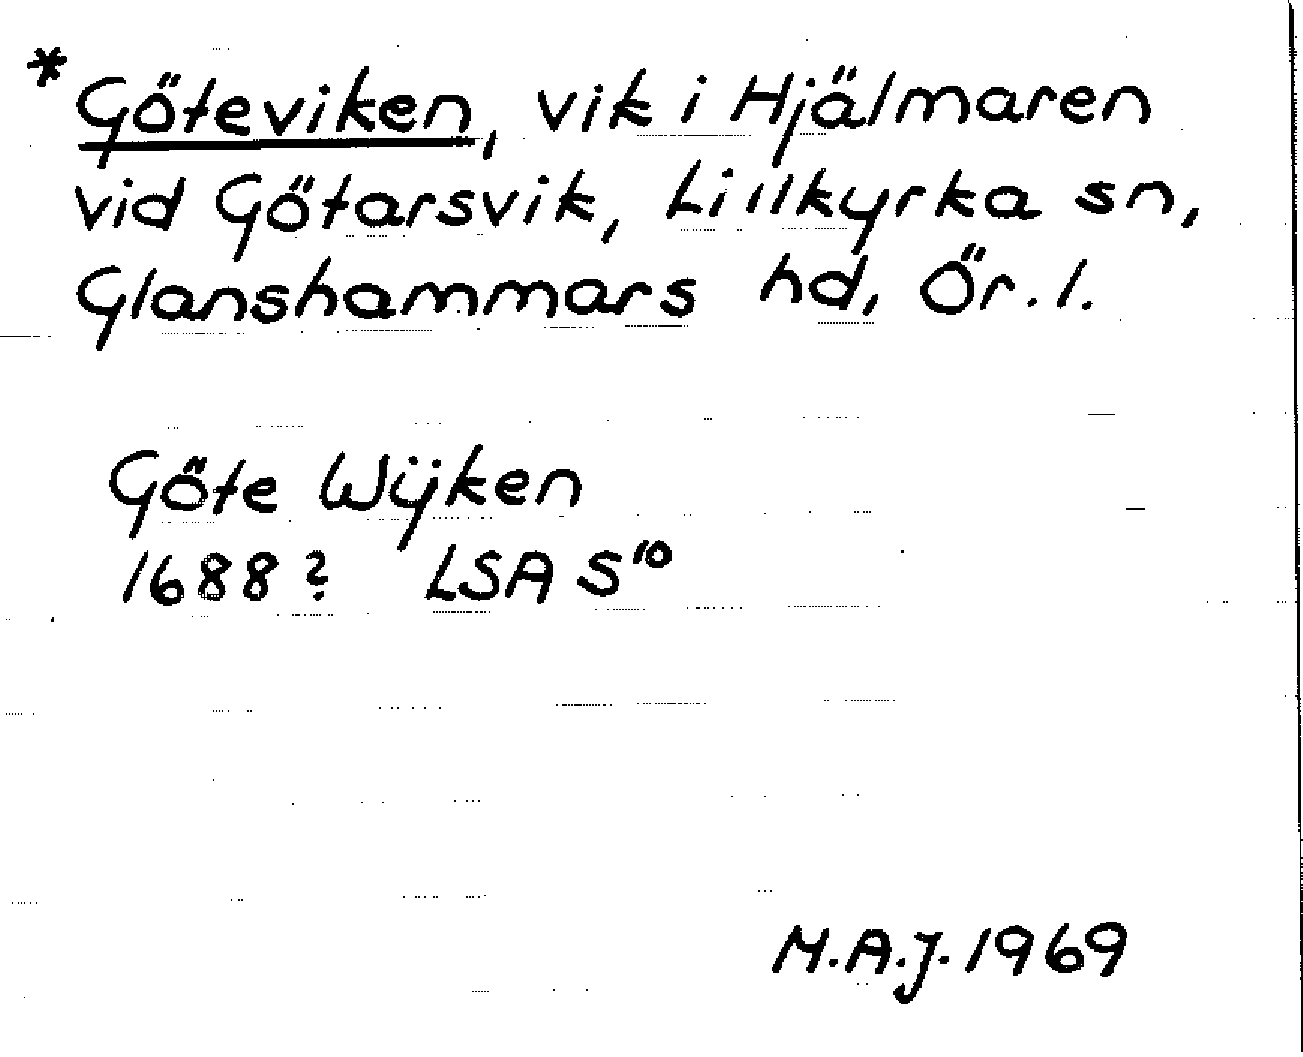 *Göteviken, vik i Hjälmaren
vid Götarsvik, Lillkyrka sn,
Glanshammars hd, Ör. l.
Göte Wijken
1688? LSA S¹⁰
M.A.J. 1969